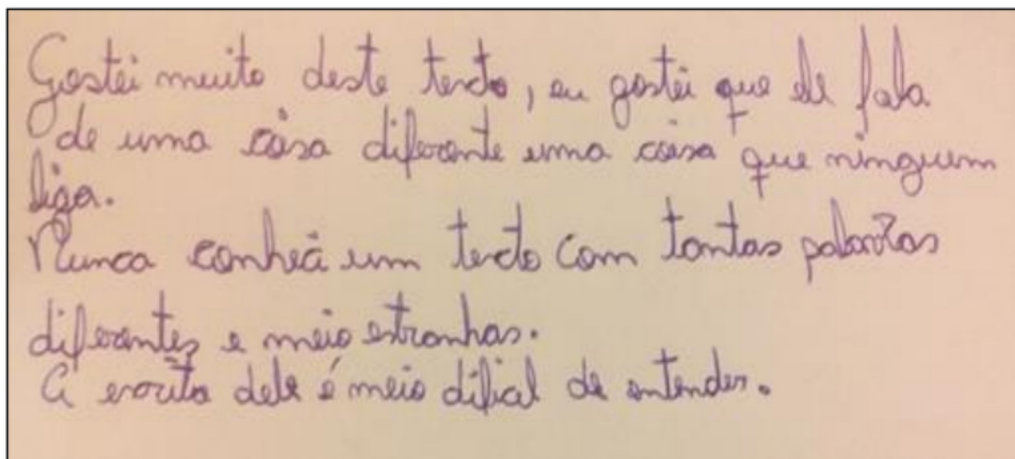 Gostei muito deste texto, eu gostei que ele fala
de uma coisa diferente uma coisa que ninguem
liga.
Nunca conheci um texto com tantas palavras
diferentes e meio estranhas.
A escrita dele é meio difical de entender.